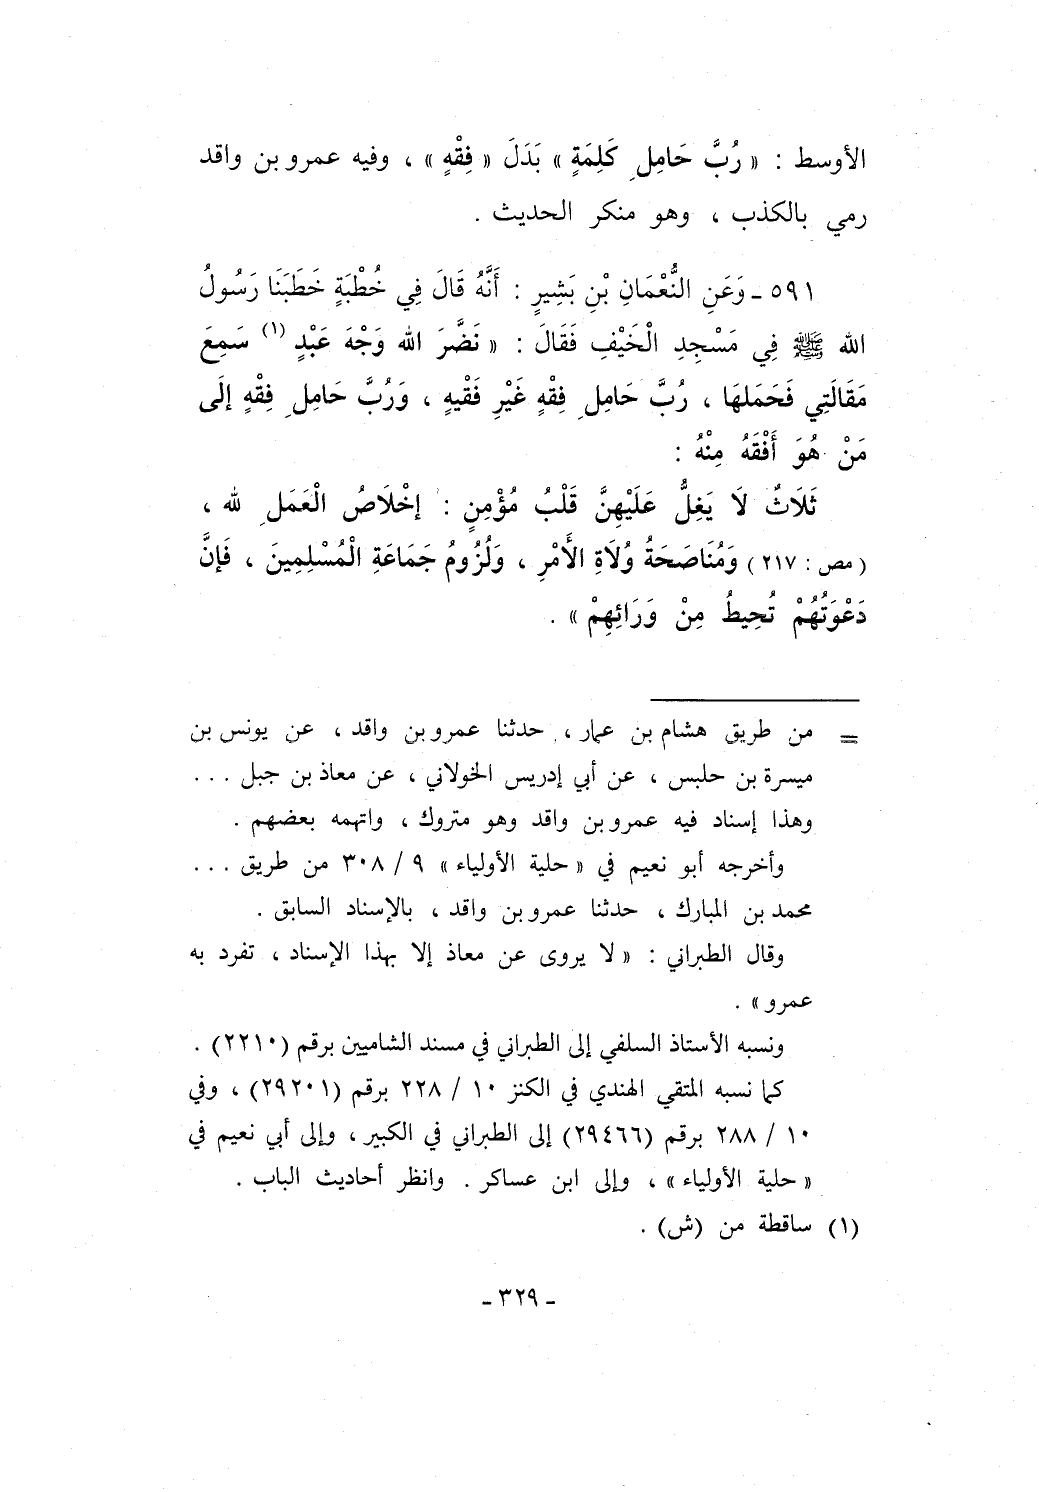 الأوسط : « رُبَّ حَامِلِ كَلِمَةٍ » بَدَلَ « فِقْهٍ » ، وفيه عمرو بن واقد
رمي بالكذب ، وهو منكر الحديث .
٥٩١ ـ وَعَنِ النُّعْمَانِ بْنِ بَشِيرٍ : أَنَّهُ قَالَ فِي خُطْبَةٍ خَطَبَنَا رَسُولُ
الله ﷺ فِي مَسْجِدِ الْخَيْفِ فَقَالَ : « نَضَّرَ الله وَجْهَ عَبْدٍ (١) سَمِعَ
مَقَالَتِي فَحَمَلهَا ، رُبَّ حَامِلِ فِقْهٍ غَيْرِ فَقْيهٍ ، وَرُبَّ حَامِلِ فِقْهٍ إلَى
مَنْ هُوَ أَفْقَهُ مِنْهُ :
ثَلَاثٌ لَا يَغِلُّ عَلَيْهِنَّ قَلْبُ مُؤْمِنٍ : إخْلَاصُ الْعَمَلِ لله ،
( مص : ٢١٧ ) وَمُنَاصَحَةُ وُلَاةِ الأَمْرِ ، وَلُزُومُ جَمَاعَةِ الْمُسْلِمِينَ ، فَإنَّ
دَعْوَتُهُمْ تُحِيطُ مِنْ وَرَائِهِمْ » .
= من طريق هشام بن عمار ، حدثنا عمرو بن واقد ، عن يونس بن
ميسرة بن حلبس ، عن أبي إدريس الخولاني ، عن معاذ بن جبل ...
وهذا إسناد فيه عمرو بن واقد وهو متروك ، واتهمه بعضهم .
وأخرجه أبو نعيم في « حلية الأولياء » ٩ / ٣٠٨ من طريق ...
محمد بن المبارك ، حدثنا عمرو بن واقد ، بالإسناد السابق .
وقال الطبراني : « لا يروى عن معاذ إلا بهذا الإسناد ، تفرد به
عمرو » .
ونسبه الأستاذ السلفي إلى الطبراني في مسند الشاميين برقم (٢٢١٠) .
كما نسبه المتقي الهندي في الكنز ١٠ / ٢٢٨ برقم (٢٩٢٠١) ، وفي
١٠ / ٢٨٨ برقم (٢٩٤٦٦) إلى الطبراني في الكبير ، وإلى أبي نعيم في
« حلية الأولياء » ، وإلى ابن عساكر . وانظر أحاديث الباب .
(١) ساقطة من (ش) .
- ٣٢٩ -